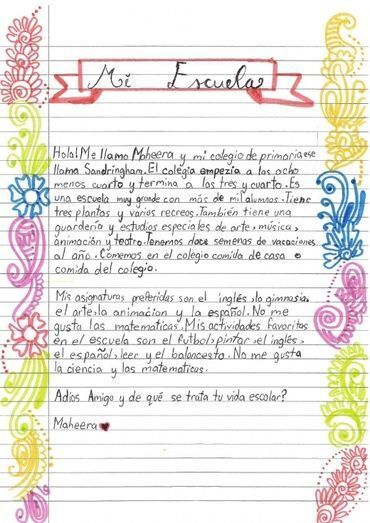 Mi Escuela
Hola! Me llamo Maheera y mi colegio de primaria ese
llama Sandringham. El colegia empezia a las ocho
menos cuarto y termina a las tres y cuarto. Es
una escuela muy grande con más de mil alumnos. Tiene
tres plantas y varios recreos. También tiene una
guardería y estudios especiales de arte, música,
animación y teatro. Tenemos doce semanas de vacaciones
al año. Comemos en el colegio comida de casa o
comida del colegio.
Mis asignaturas preferidas son el inglés, la gimnasia,
el arte, la animacion y la español. No me
gusta las matematicas. Mis actividades favoritas
en el escuela son el futbol, pintar, el inglés,
el español, leer y el baloncesto. No me gusta
la ciencia y las matematicas.
Adios Amigo y de qué se trata tu vida escolar?
Maheera